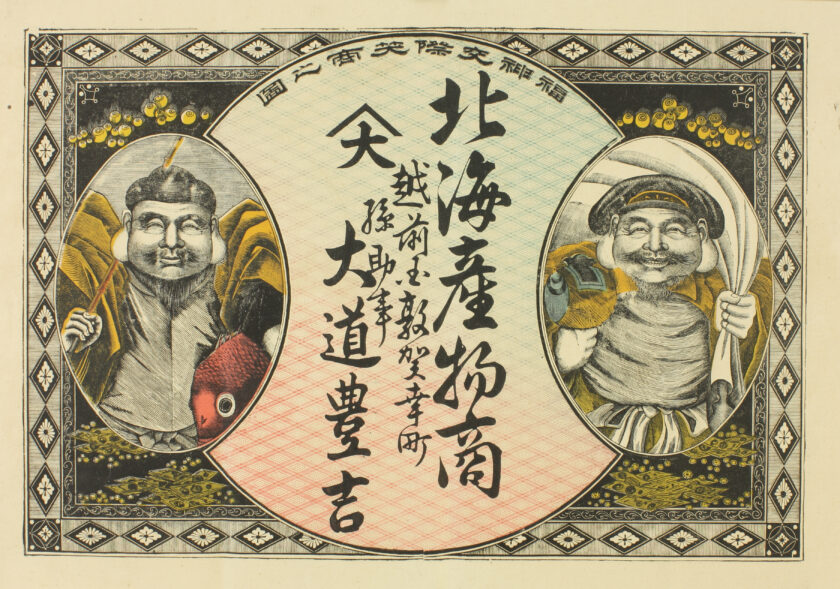 福神交際笑商之圖
北海産物商
越前国敦賀幸町
孫助事
大
大道豊吉